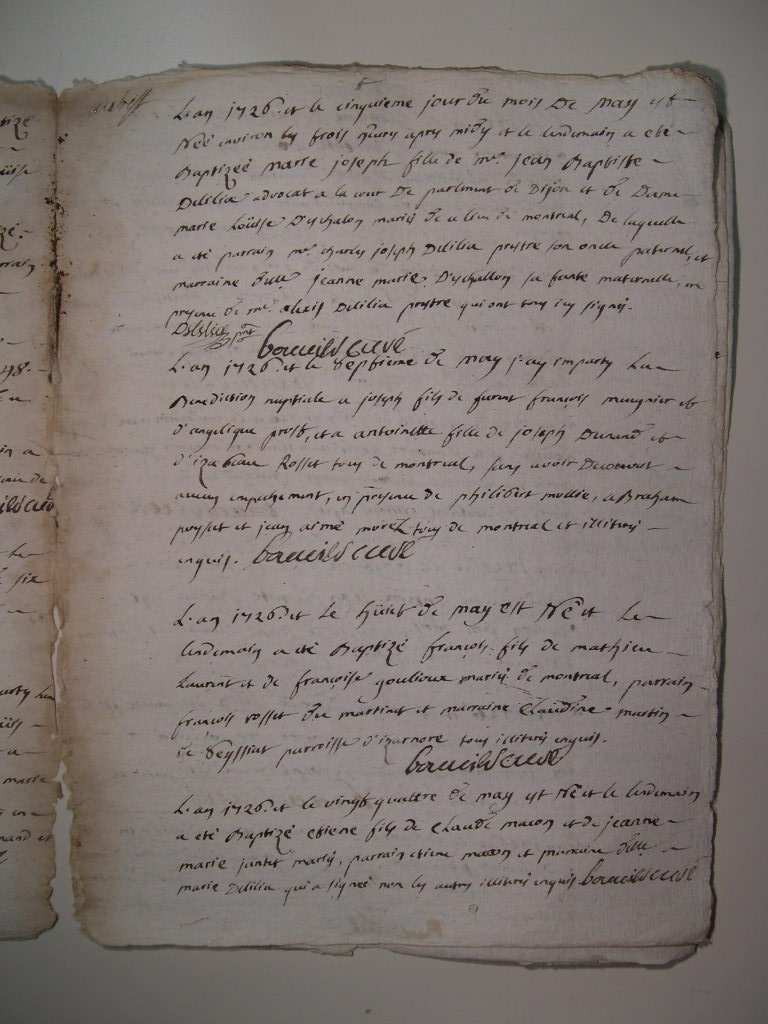 L'an 1726. et le cinquieme jour du mois de may est
Née environ les trois heures apres midy et le lendemain a eté
Baptizéé marie joseph fille de mr. jean Baptiste
Delilia advocat a la cour de parlement de Dijon et de Dame
marie Loüise D'eschalon mariés de ce lieu de montreal, De laquelle
a eté parrain mr. charles joseph Delilia prestre son oncle paternel, et
marraine Dlle jeanne marie D'eschallon sa tante maternelle, en
presence de mr. alexis Delilia prestre qui ont tous icy signés.
Delilia
curé
L'an 1726. et le septieme de may j'ay imparty La
Benediction nuptiale a joseph fils de furent françois meugnier et
d'angelique prost, et a antoinette fille de joseph Durand et
d'izabeau Rosset tous de montreal, sans avoir Decouvert
aucun empechement, en presence de philibert mollie, abraham
peysset et jean aimé morel tous de montreal et illiterés
enquis. curé
L'an 1726. et Le huict de may est Né et Le
lendemain a eté Baptizé françois fils de mathieu
Laurent et de françoise goulioux mariés de montreal, parrain
francois rosset du martinet et marraine Claudine martin
de Veyssiat parroisse d'izarnore tous illiterés enquis.
curé
L'an 1726. et le vingt quattre de may est Né et le lendemain
a eté Baptizé etiene fils de Claude macon et de jeanne
marie jantet mariés, parrain etiene macon et marraine Dlle
marie Delilia qui a signéé non les autres illiterés enquis. curé